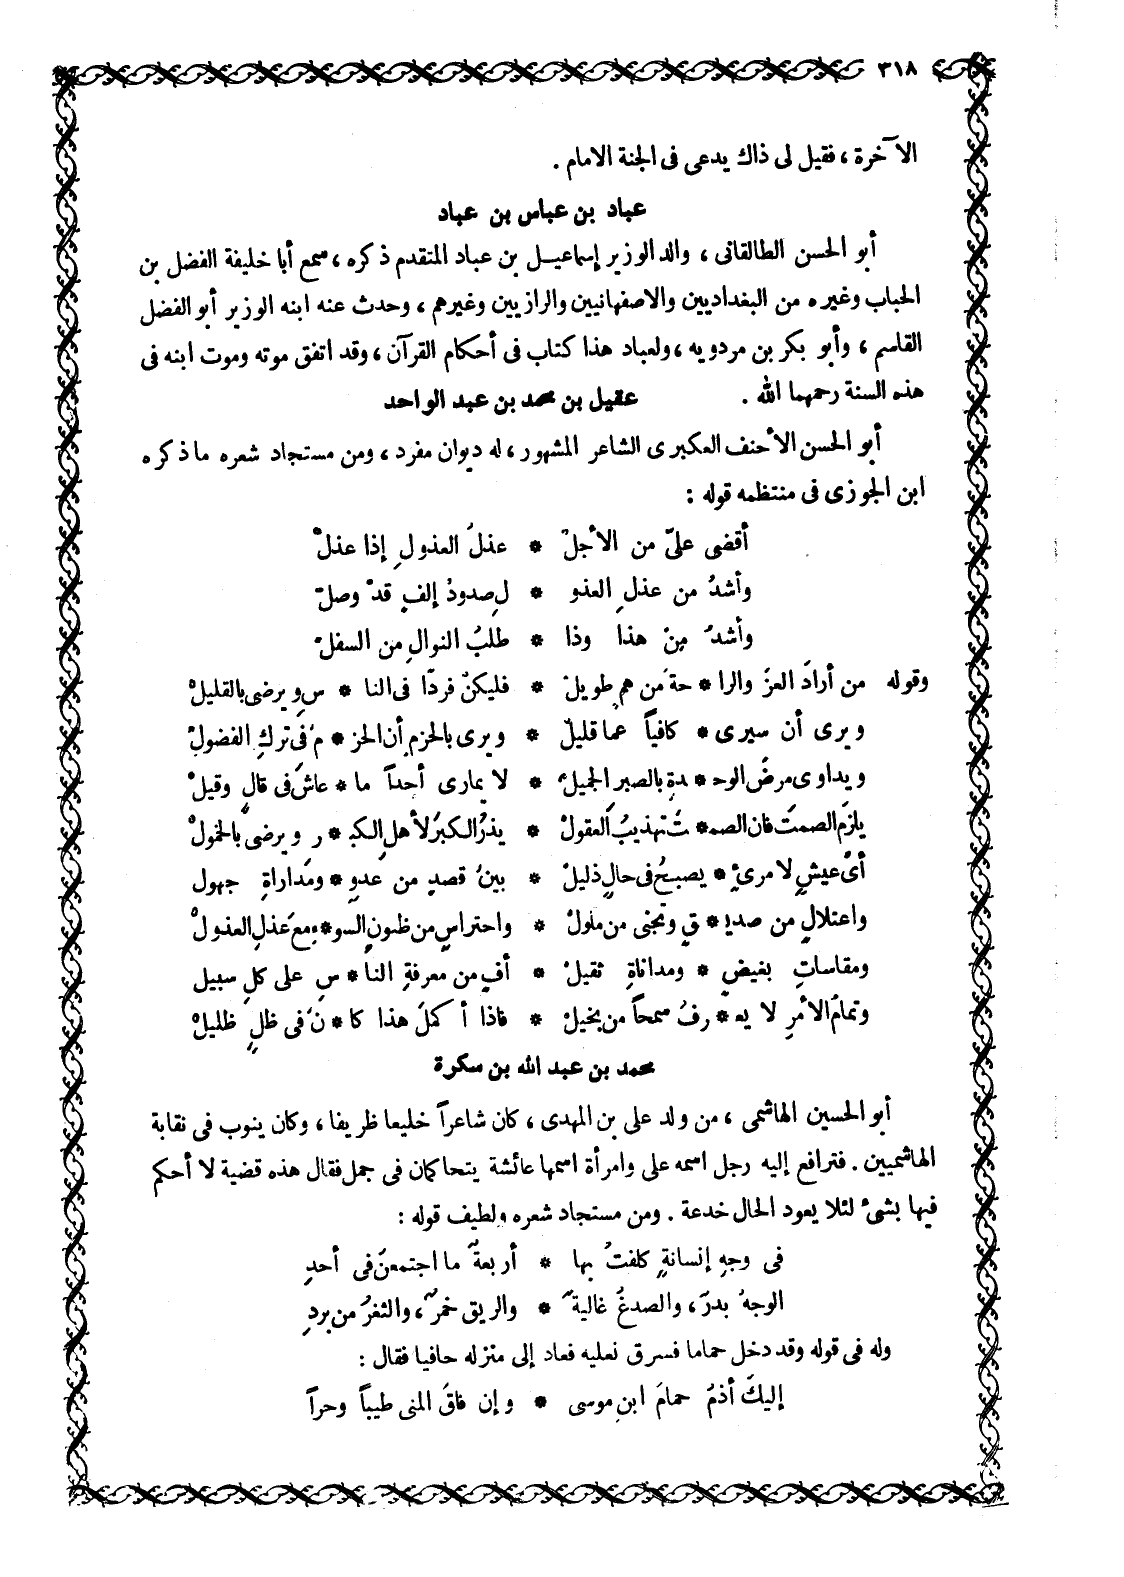 ٣١٨
الآخرة ، فقيل لى ذاك يدعى فى الجنة الامام .
عباد بن عباس بن عباد
أبو الحسن الطالقانى ، والد الوزير إسماعيل بن عباد المتقدم ذكره ، سمع أبا خليفة الفضل بن
الحباب وغيره من البغداديين والاصفهانيين والرازيين وغيرهم ، وحدث عنه ابنه الوزير أبو الفضل
القاسم ، وأبو بكر بن مردويه ، ولعباد هذا كتاب فى أحكام القرآن ، وقد اتفق موته وموت ابنه فى
هذه السنة رحمهما الله . عقيل بن محمد بن عبد الواحد
أبو الحسن الأحنف العكبرى الشاعر المشهور ، له ديوان مفرد ، ومن مستجاد شعره ما ذكره
ابن الجوزى فى منتظمه قوله :
أقضى علىّ من الأجلْ * عذلَ العذولِ إذا عذلْ
وأشدُ من عذلِ العذو * لِ صدودُ إلفٍ قدْ وصلْ
وأشدُ منْ هذا وذا * طلبُ النوالِ من السفلْ
وقوله من أرادَ العزَ والرا * حةَ من همٍ طويلْ * فليكنْ فردًا فى النا * سِ ويرضى بالقليلْ
ويرى أن سيرى * كافياً عما قليلْ * ويرى بالحزمِ أن الحز * مَ فى تركِ الفضولْ
ويداوى مرضَ الوحـ * ـدةِ بالصبر الجميلْ * لا يمارى أحداً ما * عاشَ فى قالٍ وقيلْ
يلزمَ الصمتَ فان الصمـ * ـتَ تهذيبُ العقولْ * يذرُ الكبرَ لأهلِ الكبـ * ـرِ ويرضى بالخمولْ
أىُ عيشٍ لامرئٍ * يصبحُ فى حالٍ ذليلْ * بينَ قصدٍ من عدوٍ * ومداراةِ جهول
واعتلالٍ من صديـ * ـقٍ وتجنى من ملولْ * واحتراسٍ من ظنونِ السو * ءِ مع عذلِ العذولْ
ومقاساتِ بغيضٍ * ومداناةِ ثقيلْ * أفٍ من معرفةِ النا * سِ على كلِ سبيل
وتمامُ الأمرِ لا يعـ * ـرفُ سمحاً من بخيلْ * فاذا أكملَ هذا كا * نَ فى ظلٍ ظليلْ
محمد بن عبد الله بن سكرة
أبو الحسين الهاشمى ، من ولد على بن المهدى ، كان شاعراً خليعا ظريفا ، وكان ينوب فى نقابة
الهاشميين . فترافع إليه رجل اسمه على وامرأة اسمها عائشة يتحاكمان فى جمل فقال هذه قضية لا أحكم
فيها بشئ لئلا يعود الحال خدعة . ومن مستجاد شعره ولطيف قوله :
فى وجهِ إنسانةٍ كلفتُ بها * أربعةٌ ما اجتمعنَ فى أحدِ
الوجهُ بدرٌ ، والصدغُ غاليةٌ * والريق خمرٌ ، والثغرُ من بردِ
وله فى قوله وقد دخل حماما فسرق نعليه فعاد إلى منزله حافيا فقال :
إليكَ أذمُ حمامَ ابنِ موسى * وإن فاقَ المنى طيباً وحراً